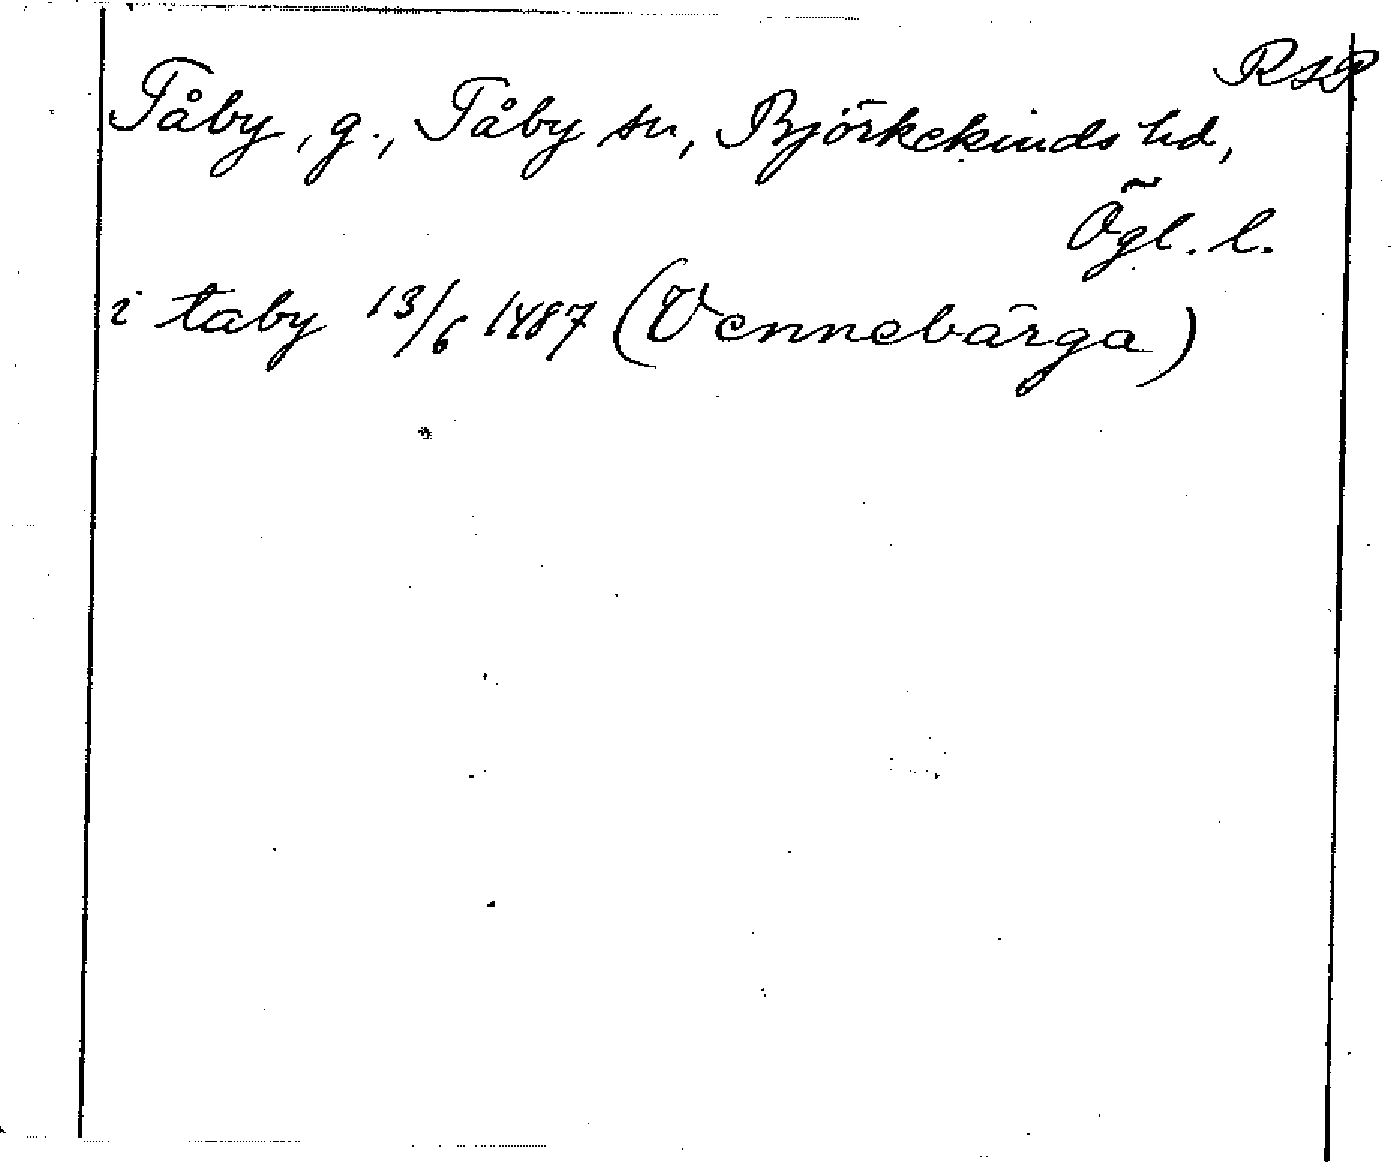 RSP
Tåby, g., Tåby sn, Björkekinds hd,
Ögl. l.
i taby 13/6 1487 (Vennebärga)